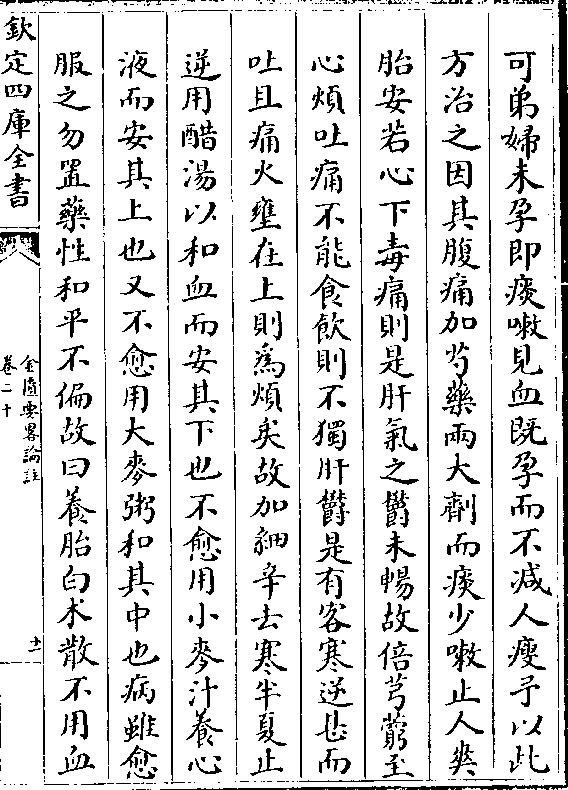 可弟婦未孕即痰嗽見血既孕而不减人瘦予以此
方治之因其腹痛加芍藥兩大劑而痰少嗽止人爽
胎安若心下毒痛則是肝氣之欝未暢故倍芎藭至
心煩吐痛不能食飲則不獨肝欝是有客寒逆甚而
吐且痛火壅在上則為煩矣故加細辛去寒半夏止
逆用醋湯以和血而安其下也不愈用小麥汁養心
液而安其上也又不愈用大麥粥和其中也病雖愈
服之勿置藥性和平不偏故曰養胎白术散不用血
欽定四庫全書
金匱要畧論註
卷二十
十一